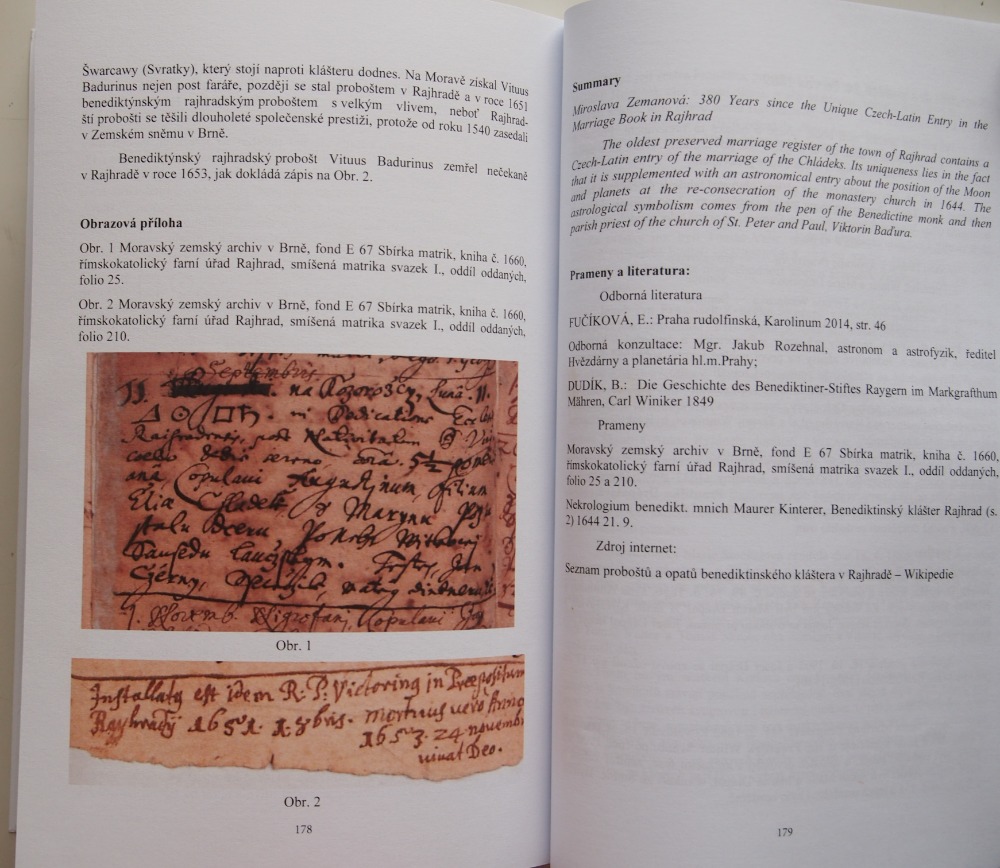 Švarcawy (Svratky), který stojí naproti klášteru dodnes. Na Moravě získal Vituus
Badurinus nejen post faráře, později se stal proboštem v Rajhradě a v roce 1651
benediktýnským rajhradským proboštem s velkým vlivem, neboť Rajhrad-
ští probošti se těšili dlouholeté společenské prestiži, protože od roku 1540 zasedali
v Zemském sněmu v Brně.
Benediktýnský rajhradský probošt Vituus Badurinus zemřel nečekaně
v Rajhradě v roce 1653, jak dokládá zápis na Obr. 2.
Obrazová příloha
Obr. 1 Moravský zemský archiv v Brně, fond E 67 Sbírka matrik, kniha č. 1660,
římskokatolický farní úřad Rajhrad, smíšená matrika svazek I., oddíl oddaných,
folio 25.
Obr. 2 Moravský zemský archiv v Brně, fond E 67 Sbírka matrik, kniha č. 1660,
římskokatolický farní úřad Rajhrad, smíšená matrika svazek I., oddíl oddaných,
folio 210.
Septembris
na Luna
in Dedicatione
Copulavi Augustinum, filium
Elia Chladek
Obr. 1
Installatg est idem R. P. Victoring in Praepositum
1651. mortuus vero Anno
1653. 24 novemb
vivat Deo.
Obr. 2
178
Summary
Miroslava Zemanová: 380 Years since the Unique Czech-Latin Entry in the
Marriage Book in Rajhrad
The oldest preserved marriage register of the town of Rajhrad contains a
Czech-Latin entry of the marriage of the Chládeks. Its uniqueness lies in the fact
that it is supplemented with an astronomical entry about the position of the Moon
and planets at the re-consecration of the monastery church in 1644. The
astrological symbolism comes from the pen of the Benedictine monk and then
parish priest of the church of St. Peter and Paul, Viktorin Baďura.
Prameny a literatura:
Odborná literatura
FUČÍKOVÁ, E.: Praha rudolfinská, Karolinum 2014, str. 46
Odborná konzultace: Mgr. Jakub Rozehnal, astronom a astrofyzik, ředitel
Hvězdárny a planetária hl.m.Prahy;
DUDÍK, B.: Die Geschichte des Benediktiner-Stiftes Raygern im Markgrafthum
Mähren, Carl Winiker 1849
Prameny
Moravský zemský archiv v Brně, fond E 67 Sbírka matrik, kniha č. 1660,
římskokatolický farní úřad Rajhrad, smíšená matrika svazek I., oddíl oddaných,
folio 25 a 210.
Nekrologium benedikt. mnich Maurer Kinterer, Benediktinský klášter Rajhrad (s.
2) 1644 21. 9.
Zdroj internet:
Seznam proboštů a opatů benediktinského kláštera v Rajhradě – Wikipedie
179